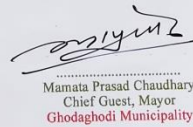 Mamata Prasad Chaudhary
Chief Guest, Mayor
Ghodaghodi Municipality